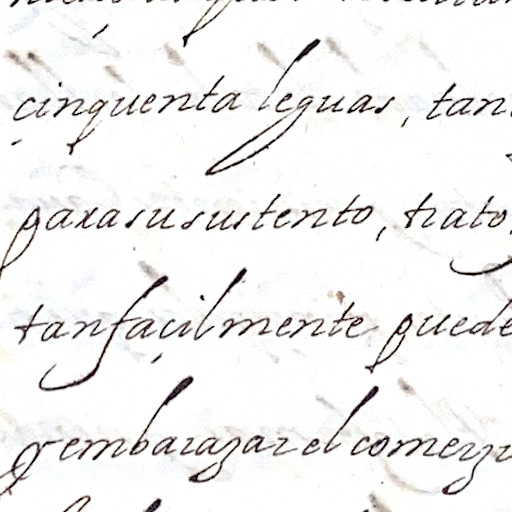 cinquenta leguas, tan
para su sustento, trato,
tan façilmente puede
y embarazar el comerzi